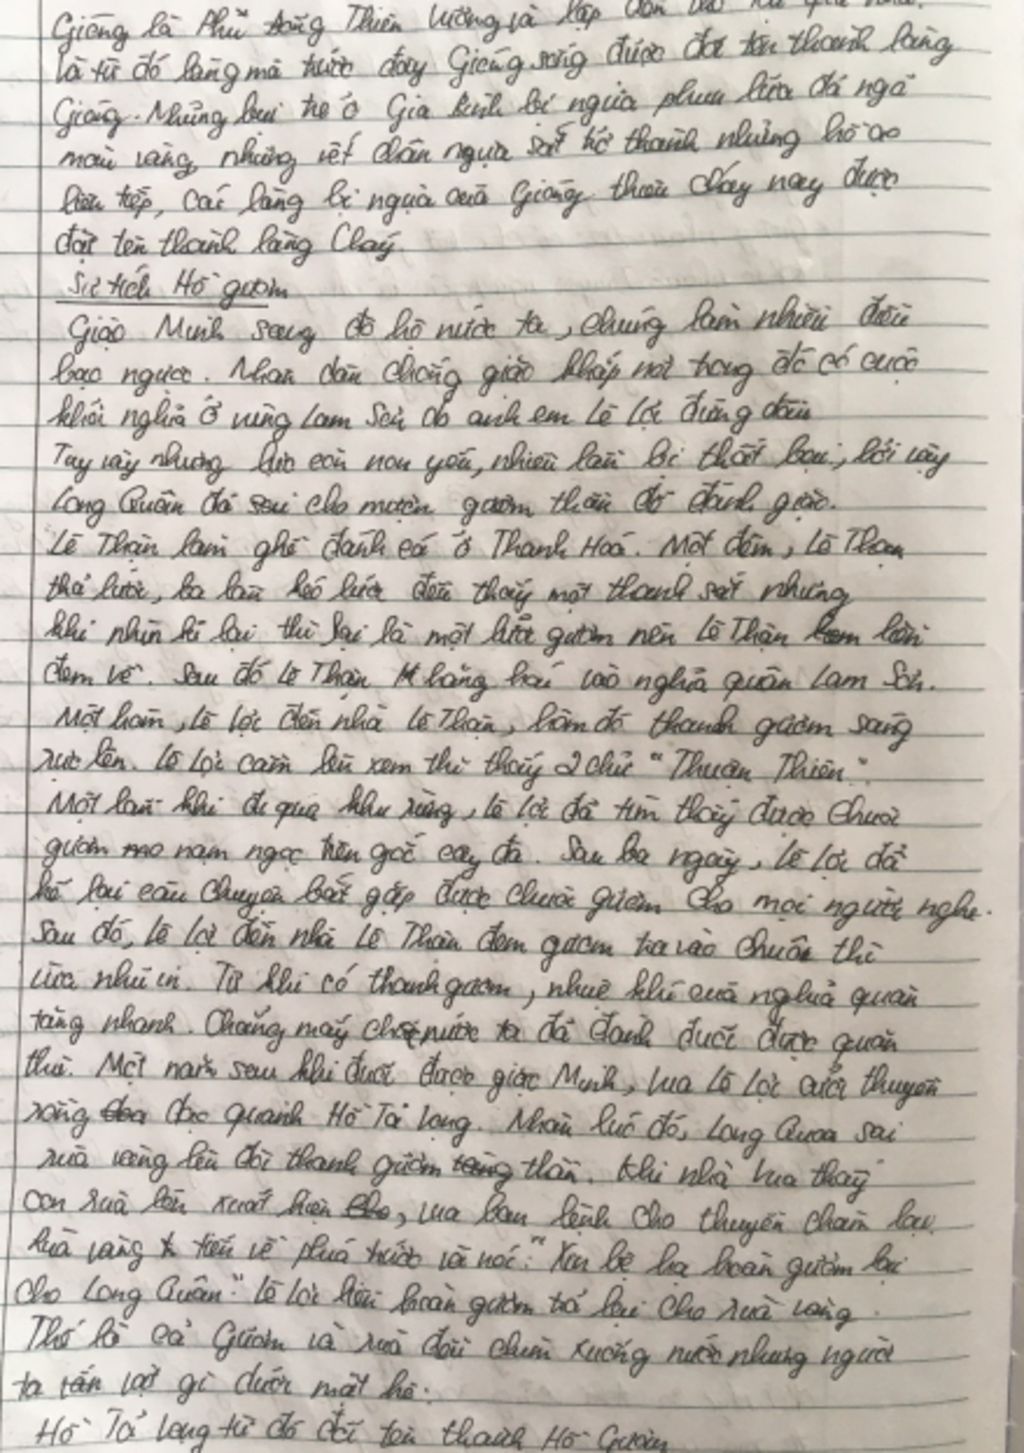 Gióng là Phù Đổng Thiên Vương và lập đền
là từ đó làng mà trước đây Gióng sống được đổi tên thành làng
Gióng. Những bụi tre ở Gia bình bị ngựa phun lửa đã ngả
màu vàng, những vết chân ngựa sắt trở thành những hồ ao
liên tiếp, các làng bị ngựa của Gióng thiêu cháy nay được
đặt tên thành làng Cháy.
Sự tích Hồ gươm
Giặc Minh sang đô hộ nước ta, chúng làm nhiều điều
bạo ngược. Nhân dân chống giặc khắp nơi trong đó có cuộc
khởi nghĩa ở vùng Lam Sơn do anh em Lê Lợi đứng đầu
Tuy vậy nhưng lực còn non yếu, nhiều lần bị thất bại, bởi vậy
Long Quân đã cho mượn gươm thần để đánh giặc.
Lê Thận làm ghề đánh cá ở Thanh Hoá. Một đêm, Lê Thận
thả lưới, ba lần kéo lưới đều thấy một thanh sắt nhưng
khi nhìn kĩ lại thì lại là một lưỡi gươm nên Lê Thận liền
đem về. Sau đó Lê Thận hăng hái vào nghĩa quân Lam Sơn.
Một hôm, Lê Lợi đến nhà Lê Thận, hôm đó thanh gươm sáng
rực lên. Lê Lợi cầm lên xem thì thấy 2 chữ "Thuận Thiên".
Một lần khi đi qua khu rừng, Lê Lợi đã tìm thấy được chuôi
gươm nạm ngọc trên gốc cây đa. Sau ba ngày, Lê Lợi đã
kể lại câu chuyện bắt gặp được chuôi gươm cho mọi người nghe.
Sau đó, Lê Lợi đến nhà Lê Thận đem gươm tra vào chuôi thì
vừa như in. Từ khi có thanh gươm, nhuệ khí của nghĩa quân
tăng nhanh. Chẳng mấy chốc nước ta đã đánh đuổi được quân
thù. Một năm sau khi đuổi được giặc Minh, vua Lê Lợi cưỡi thuyền
rồng dạo quanh Hồ Tả Vọng. Nhân lúc đó, Long Quân sai
rùa vàng lên đòi thanh gươm thần. Khi nhà vua thấy
con rùa lớn xuất hiện, vua ban lệnh cho thuyền chậm lại.
Rùa vàng tiến về phía trước và nói: "Xin bệ hạ hoàn gươm lại
cho Long Quân." Lê Lợi liền hoàn gươm trả lại cho rùa vàng.
Thế là cả Gươm và rùa đều chìm xuống nước nhưng người
ta vẫn vệt gì dưới mặt hồ.
Hồ Tả Vọng từ đó đổi tên thành Hồ Gươm